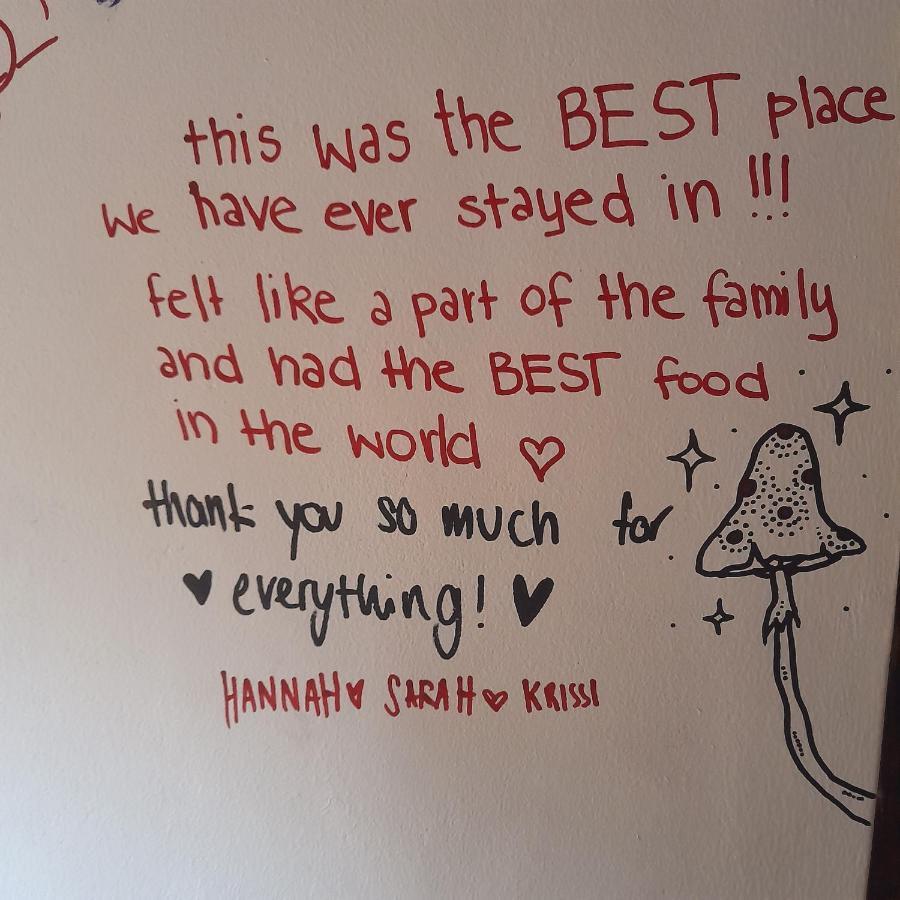 this was the BEST place
we have ever stayed in !!!
felt like a part of the family
and had the BEST food
in the world ♡
thank you so much for
♥ everything! ♥
HANNAH ♥ SARAH ♡ KRISSI